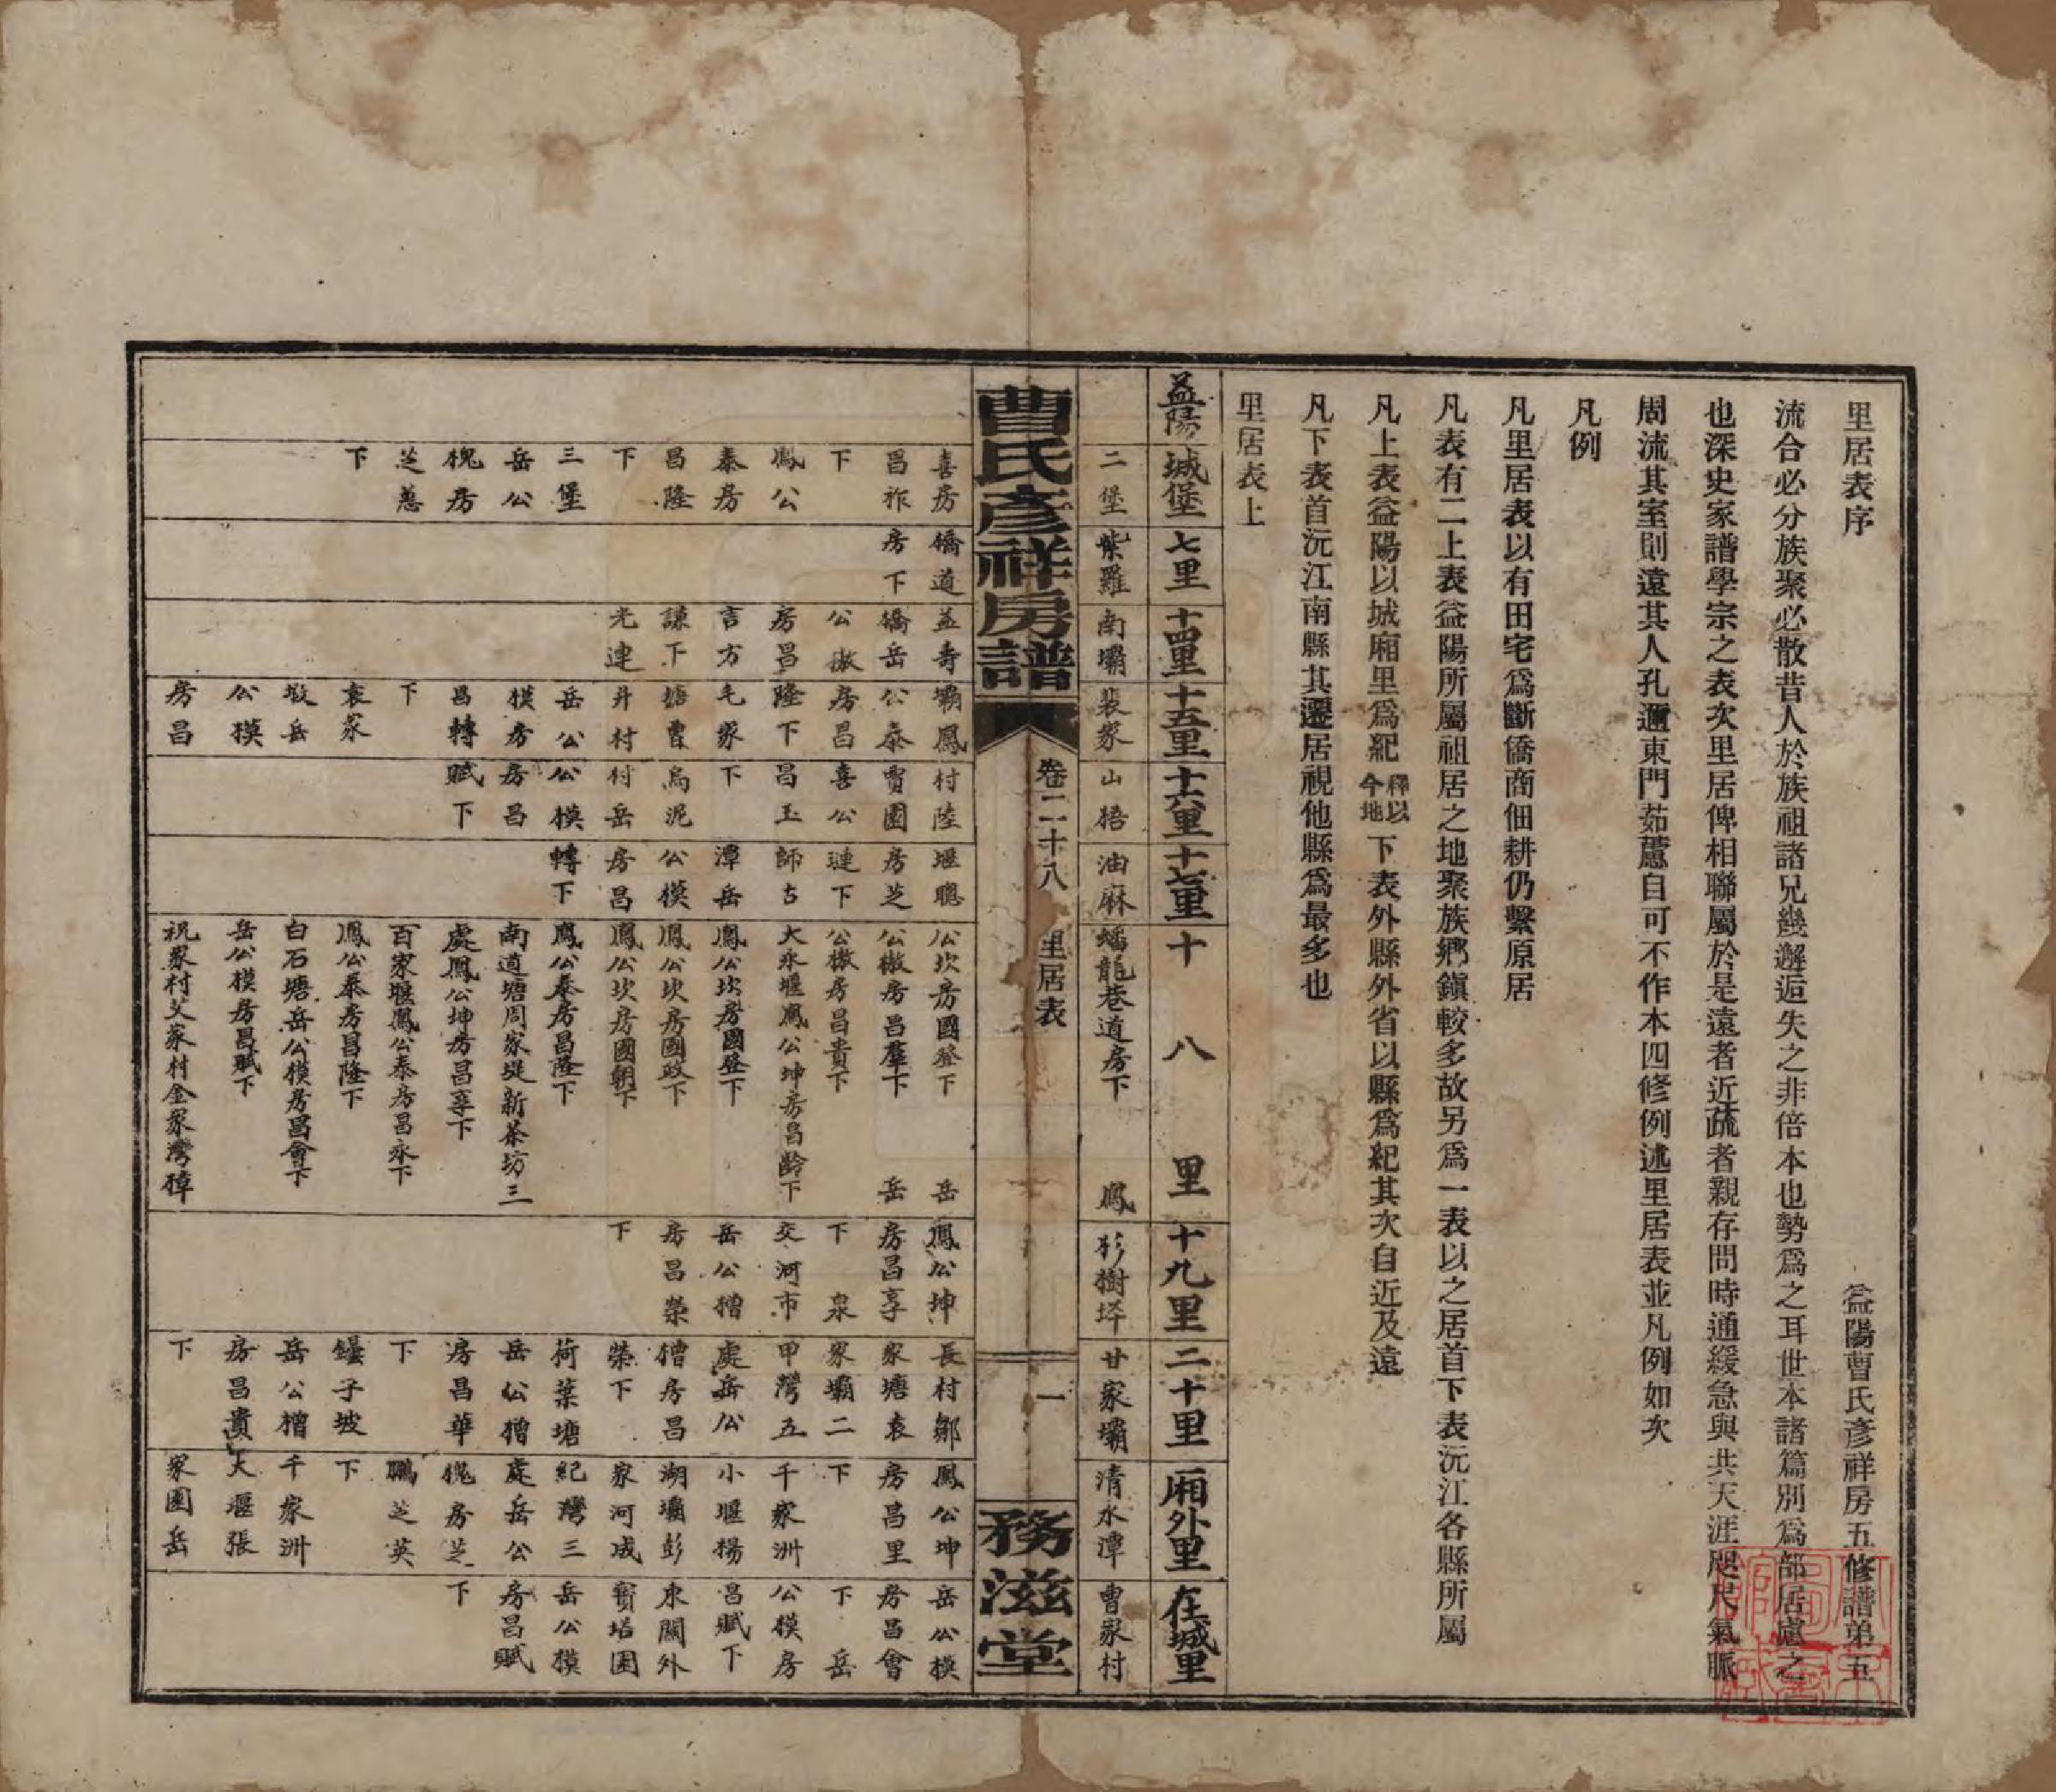 里居表序
益陽曹氏彥祥房五修譜弟五
流合必分族聚必散昔人於族祖諸兄幾邂逅失之非倍本也勢爲之耳世本諸篇別爲部居慮之
也深史家譜學宗之表次里居俾相聯屬於是遠者近疏者親存問時通緩急與共天涯咫尺氣脈
周流其室則遠其人孔邇東門茹藘自可不作本四修例述里居表並凡例如次
凡例
凡里居表以有田宅爲斷僑商佃耕仍繫原居
凡表有二上表益陽所屬祖居之地聚族鄉鎮較多故另爲一表以之居首下表沅江各縣所屬
凡上表益陽以城廂里爲紀今地釋以下表外縣外省以縣爲紀其次自近及遠
凡下表首沅江南縣其遷居視他縣爲最多也
里居表上
益陽
城堡
七里
十四里
十五里
十六里
十七里
十八里
十九里
二十里
廂外里
在城里
曹氏彥祥房譜
卷二十八
里居表
一
務滋堂
二堡
喜房
昌祚
下
鳳公
泰房
昌隆
下
三堡
岳公
槐房
芝蕙
下
紫羅
橋道
房下
南壩
益壽
橋岳
公樕
房昌
言方
謙下
光連
裴家
壩鳳
公泰
房昌
隆下
毛家
塘曹
井村
岳公
模房
昌轉
下
袁家
墩岳
公模
房昌
賦下
山梧
村陸
賈園
喜公
昌玉
下
烏泥
村岳
公模
房昌
油麻
堰聰
房芝
璉下
師古
潭岳
公模
房昌
轉下
蟠龍巷道房下
鳳
公坎房國登下
岳
公樕房昌羣下
岳
公樕房昌貴下
大水堰鳳公坤房昌齡下
鳳公坎房國登下
鳳公坎房國政下
鳳公坎房國朝下
鳳公泰房昌隆下
南道塘周家塅新茶坊三
處鳳公坤房昌享下
百家堰鳳公泰房昌永下
鳳公泰房昌隆下
白石塘岳公模房昌會下
岳公模房昌賦下
祝家村艾家村金家灣獐
杉樹坪
鳳公坤
房昌享
下泉
交河市
岳公樕
房昌榮
下
廿家壩
長村鄒
家塘袁
家壩二
甲灣五
處岳公
樕房昌
榮下
荷葉塘
岳公樕
房昌華
下
鑼子坡
岳公樕
房昌貴
下
清水潭
鳳公坤
房昌里
下
千家洲
小堰楊
湖壩彭
家河成
紀灣三
處岳公
槐房芝
鵬芝英
下
千家洲
大堰張
家園岳
曹家村
岳公模
房昌會
下岳
公模房
昌賦下
東關外
寶塔園
岳公模
房昌賦
下